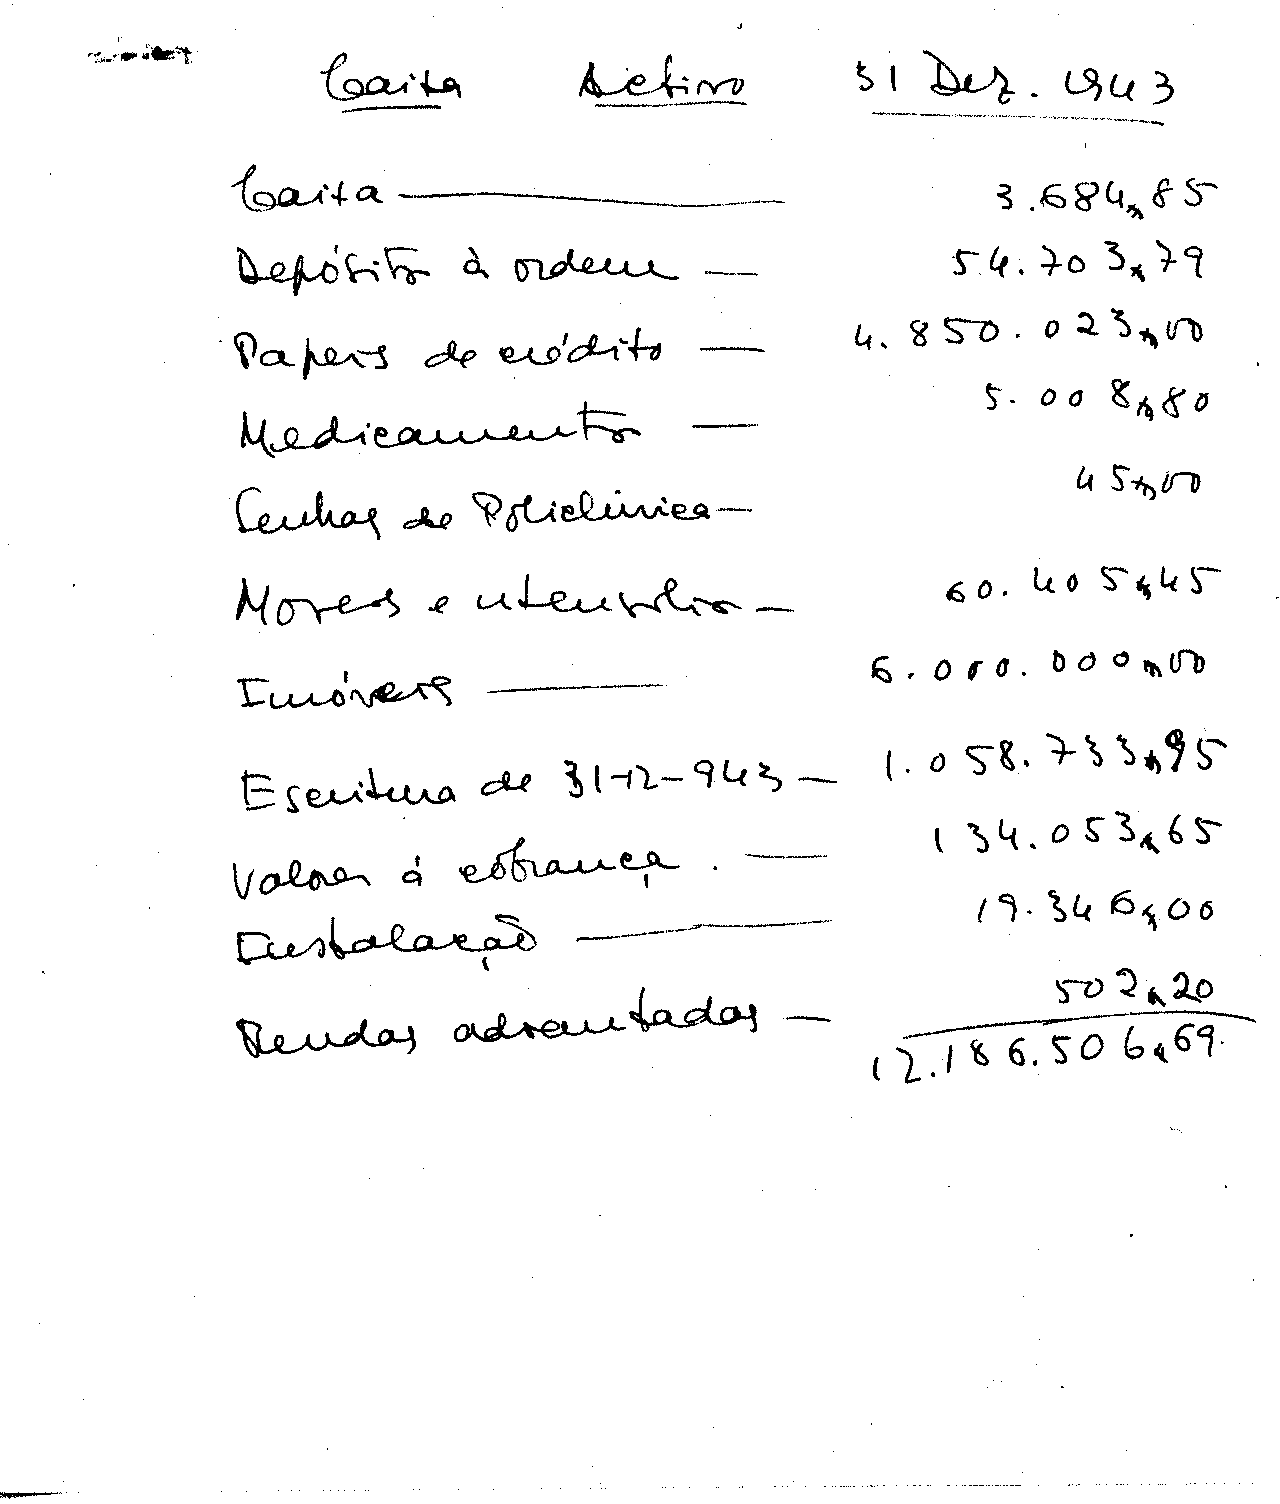 Caixa Activo 31 Dez. 1943
Caixa — 3.684,85
Depósitos à ordem — 54.703,79
Papeis de crédito — 4.850.023,00
Medicamentos — 5.008,80
Senhas de Policlínica — 45,00
Moveis e utensilios — 60.405,45
Imóveis — 6.000.000,00
Escritura de 31-12-943 — 1.058.733,95
Valores á cobrança . — 134.053,65
Instalação — 19.346,00
Rendas adiantadas — 502,20
12.186.506,69